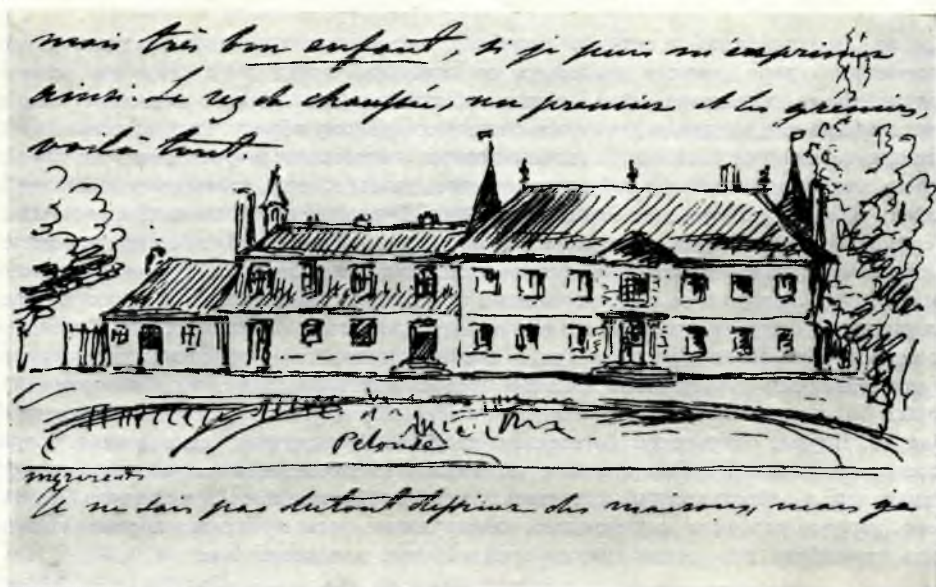 mais très bon enfant, si je puis m'exprimer
ainsi. Le rez de chaussée, un premier et les greniers,
voilà tout.
Pelouse
Je ne sais pas dutout dessiner des maisons, mais ça